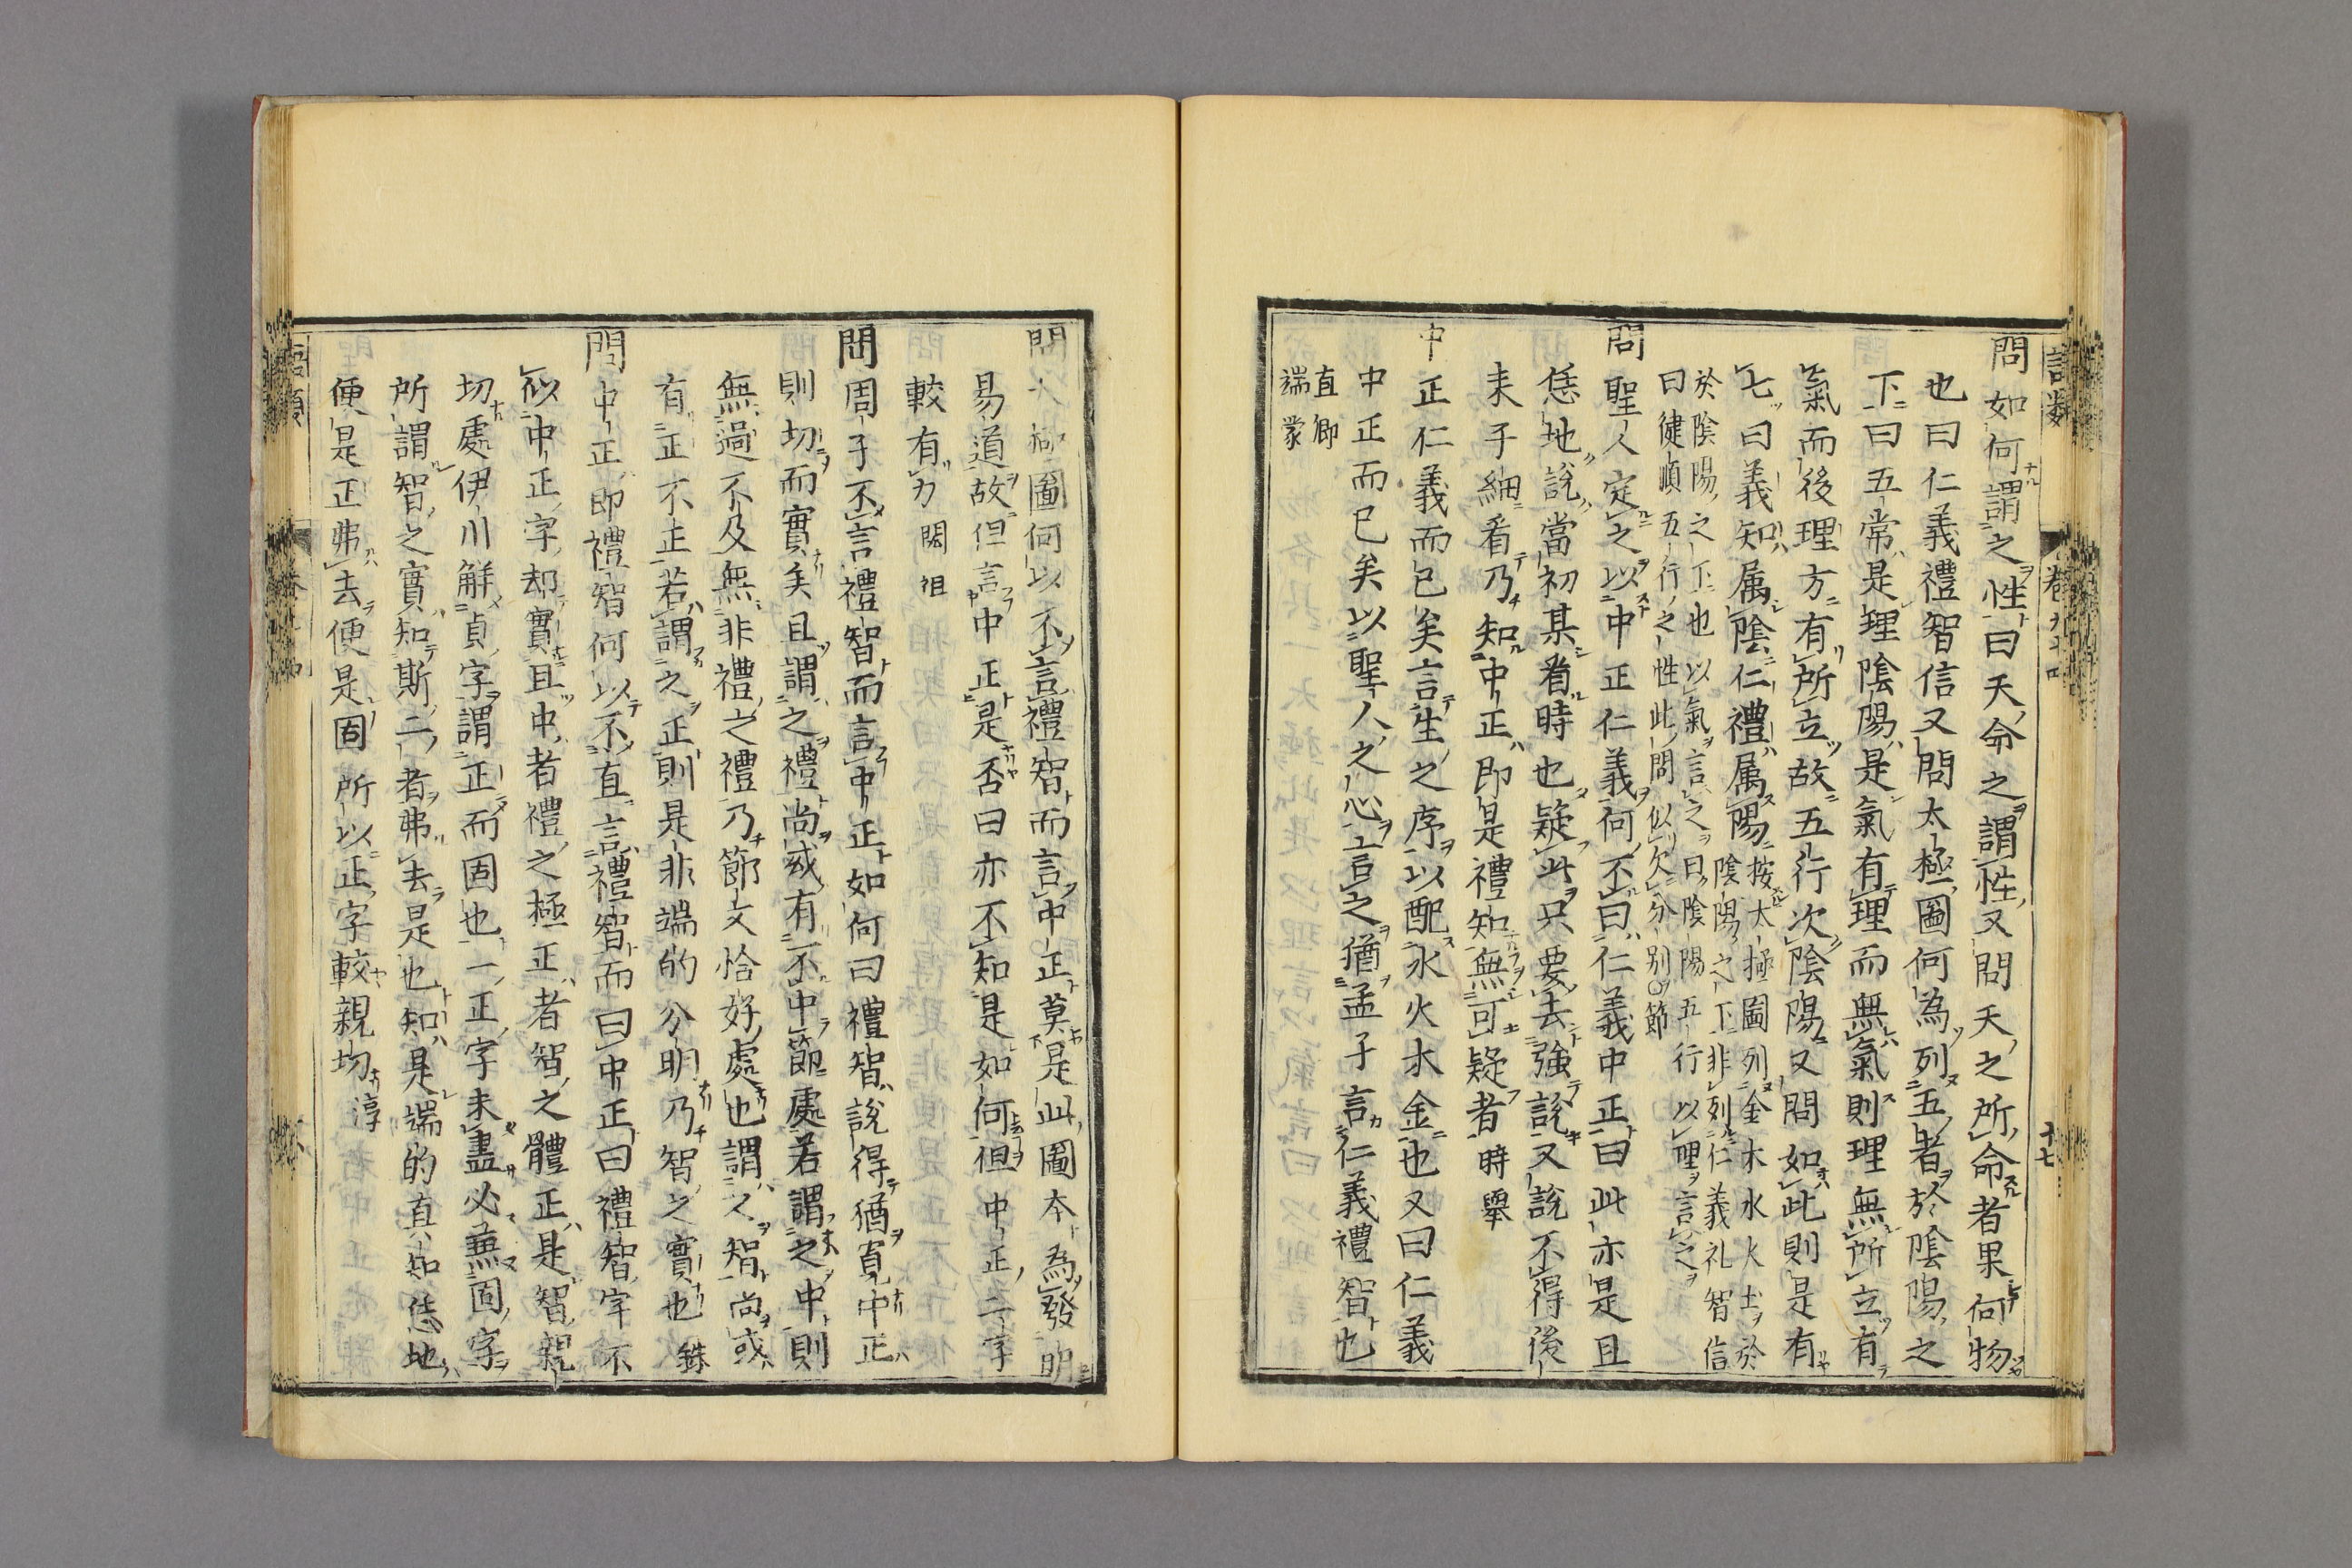 語類 卷九十四 十七
問如何謂之性曰天命之謂性又問天之所命者果何物
也曰仁義禮智信又問太極圖何為列五者於陰陽之
下曰五常是理陰陽是氣有理而無氣則理無所立有
氣而後理方有所立故五行次陰陽又問如此則是有
七曰義知属陰仁禮属陽按太極圖列金木水火土於
陰陽之下非列仁義礼智信
於陰陽之下也以氣言之曰陰陽五行以理言之
曰健順五行之性此問似欠分别節
問聖人定之以中正仁義何不曰仁義中正曰此亦是且
恁地說當初某看時也疑此只要去強說又說不得後
来子細看乃知中正即是禮知無可疑者時舉
中正仁義而已矣言生之序以配水火木金也又曰仁義
中正而已矣以聖人之心言之猶孟子言仁義禮智也
直卿
端蒙
問太極圖何以不言禮智而言中正莫是此圖本為發明
易道故但言中正是否曰亦不知是如何但中正二字
較有力閎祖
問周子不言禮智而言中正如何曰禮智說得猶寛中正
則切而實矣且謂之禮尚或有不中節處若謂之中則
無過不及無非禮之禮乃節文恰好處也謂之智尚或
有正不正若謂之正則是非端的分明乃智之實也銖
問中正即禮智何以不直言禮智而曰中正曰禮智字不
似中正字却實且中者禮之極正者智之體正是智親
切處伊川解貞字謂正而固也一正字未盡必兼固字
所謂智之實知斯二者弗去是也知是端的真知恁地
便是正弗去便是固所以正字較親切淳
語類